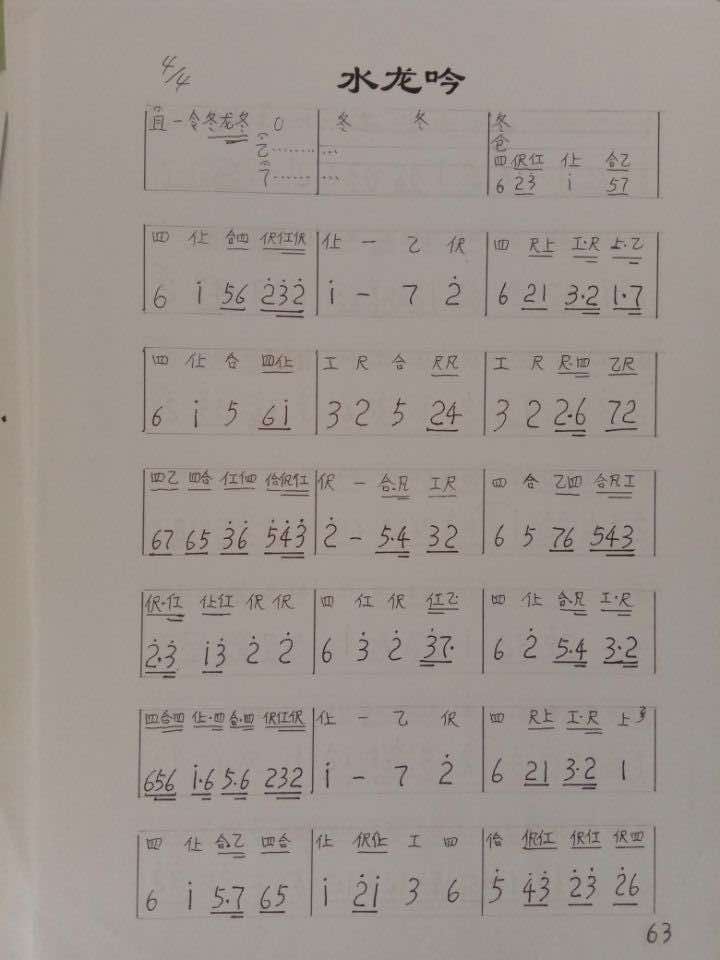 4/4
水龙吟
且 一 令 冬 龙 冬 0 冬 冬 冬
仓
乙 ········· ···
四 伬仜 仩 合乙
7 ······ ··· 6 23 i 57
四 仩 合四 伬仜伬 仩 一 乙 伬 四 尺上 工·尺 上·乙
6 i 56 2̇3̇2̇ i - 7 2̇ 6 21 3·2 1·7
四 仩 合 四仩 工 尺 合 尺凡 工 尺 尺·四 乙尺
6 i 5 6i 3 2 5 24 3 2 2·6 72
四乙 四合 仜㐵 伬仜 伬 一 合·凡 工尺 四 合 乙四 合凡工
67 65 3̇6̇ 5̇4̇3̇ 2̇ - 5·4 32 6 5 76 543
伬·仜 仩仜 伬 伬 四 仜 伬 仜乙· 四 仩 合·凡 工·尺
2̇·3̇ i3̇ 2̇ 2̇ 6 3̇ 2̇ 3̇7· 6 2̇ 5·4 3·2
四合四 仩·四 合·四 伬仜伬 仩 一 乙 伬 四 尺上 工·尺 上
656 i·6 5·6 232 i - 7 2̇ 6 21 3·2 1
四 仩 合·乙 四合 仩 伬仩 工 四 仜 伬仜 伬四
6 i 5·7 65 i 2̇i 3 6 5̇ 4̇3̇ 2̇3̇ 2̇6
63